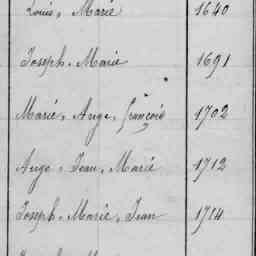 Louis, Marie 1640
Joseph, Marie 1691
Marie, Ange, François 1702
Ange, Jean, Marie 1712
Joseph, Marie, Jean 1714